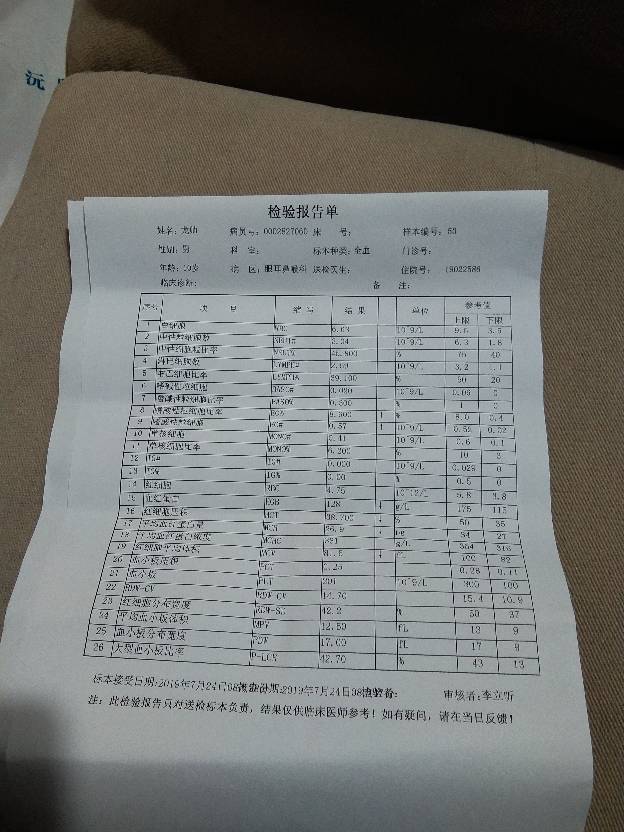 沅
检验报告单
姓名: 病员号:0002827060 床 号: 样本编号:53
性别:男 科 室: 标本种类:全血 门诊号:
年龄:10岁 病 区:眼耳鼻喉科 送检医生: 住院号: 19022586
临床诊断: 备 注:
序号 项 目 缩 写 结 果 单位 参考值
上限 下限
1 白细胞 WBC 6.03 10^9/L 9.5 3.5
2 中性粒细胞数 NEUT# 10^9/L 6.3 1.8
3 中性细胞粒比率 NEUT% % 75 40
4 淋巴细胞数 LYMPH# 10^9/L 3.2 1.1
5 淋巴细胞比率 LYMPH% 39.100 % 50 20
6 嗜碱性粒细胞 BASO# 10^9/L 0.06 0
7 嗜碱性粒细胞比率 BASO% %
8 嗜酸性粒细胞比率 ↑ % 8.0 0.4
9 嗜酸性粒细胞 0.57 ↑ 10^9/L 0.52 0.02
10 单核细胞 MONO# 10^9/L 0.6 0.1
11 单核细胞比率 MONO% 6.200 % 10 3
12 IG# IG# 0.000 10^9/L 0.029 0
13 IG% IG% 0.00 % 0.5 0
14 红细胞 RBC 4.75 10^12/L 5.8 3.8
15 血红蛋白 HGB 128 g/L 175 115
16 红细胞压积 HCT 38.700 ↓ % 50 35
17 平均血红蛋白量 MCH 26.9 ↓ pg 34 27
18 平均血红蛋白浓度 MCHC 331 g/L 354 316
19 红细胞平均体积 MCV ↓ fL 100 82
20 血小板压积 PCT 0.25 0.28 0.11
21 血小板 PLT 201 10^9/L 300 100
22 RDW-CV RDW-CV 14.70 15.4 10.9
23 红细胞分布宽度 RDW-SD 42.2 50 37
24 平均血小板体积 MPV 12.50 fL 13 9
25 血小板分布宽度 PDW 17.00 fL 17 9
26 大型血小板比率 P-LCR 42.70 % 43 13
标本接受日期:2019年7月24日08 日期:2019年7月24日08 审核者:李立昕
注:此检验报告只对送检标本负责,结果仅供临床医师参考!如有疑问,请在当日反馈!